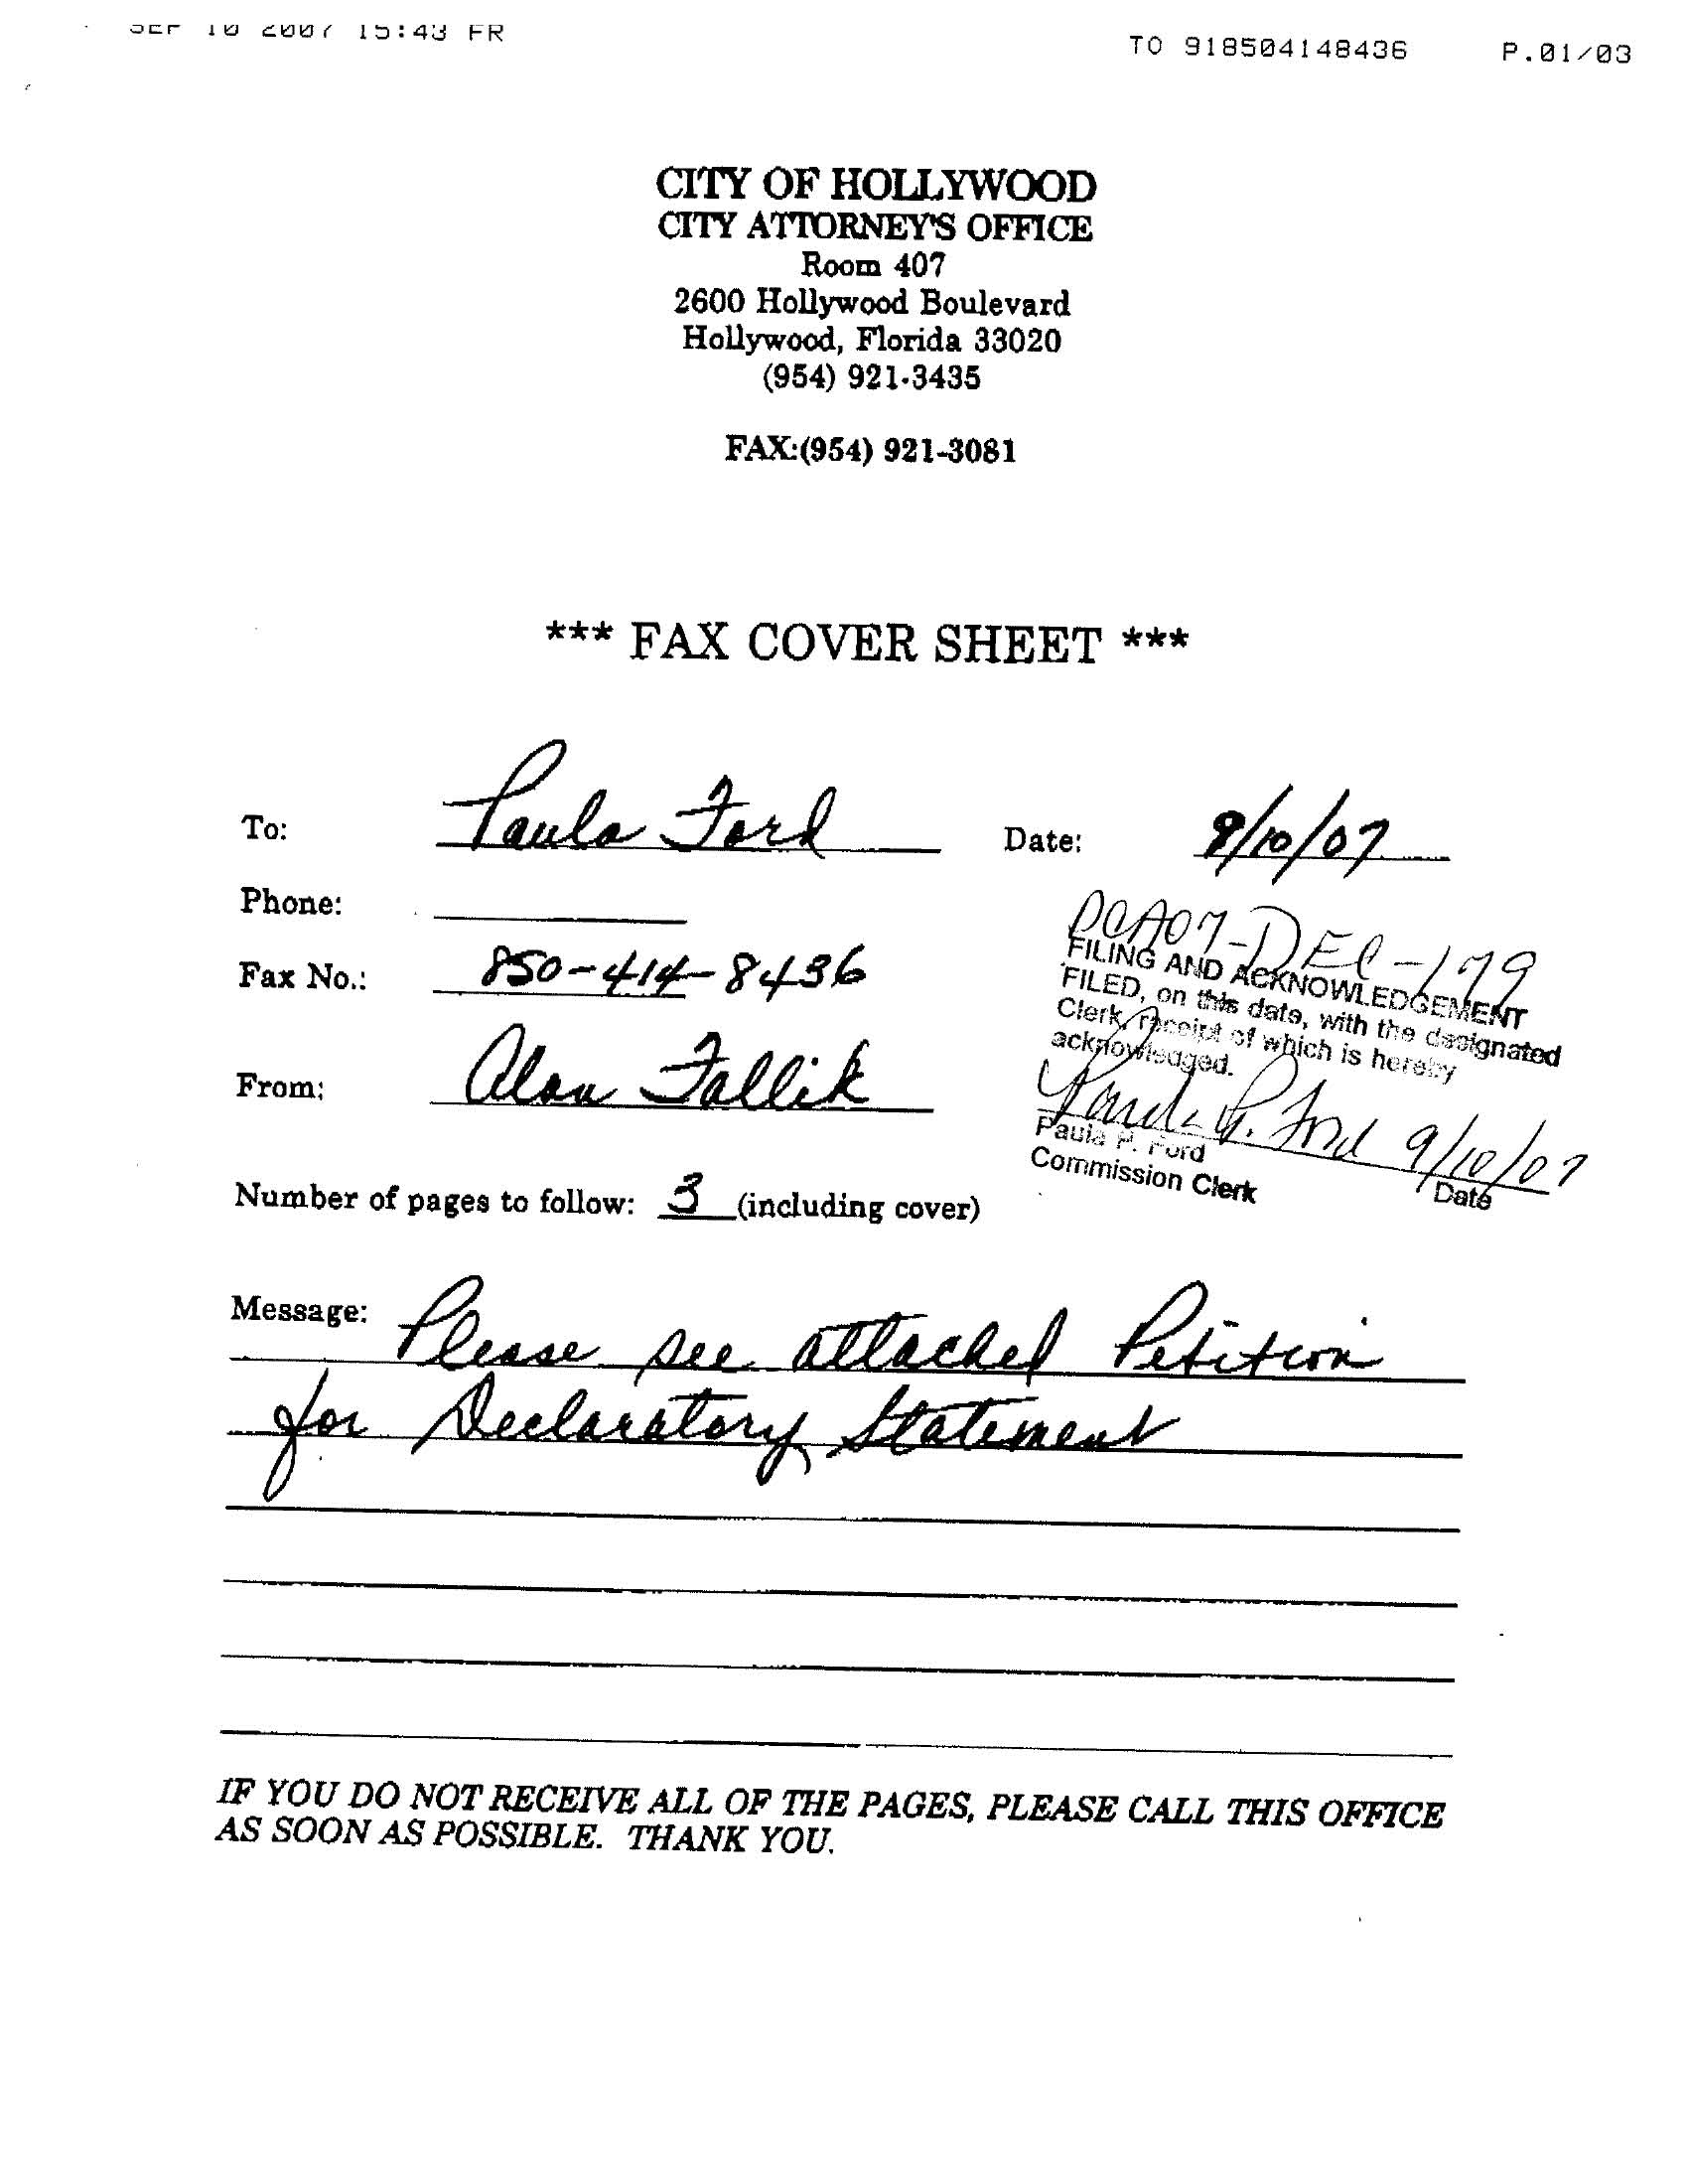 SEP 10 2007 15:43 FR
TO 918504148436 P.01/03
CITY OF HOLLYWOOD
CITY ATTORNEY'S OFFICE
Room 407
2600 Hollywood Boulevard
Hollywood, Florida 33020
(954) 921-3435
FAX:(954) 921-3081
*** FAX COVER SHEET ***
To: Paula Ford Date: 9/10/07
Phone:
Fax No.: 850-414-8436
DCA07-DEC-179
FILING AND ACKNOWLEDGEMENT
FILED, on this date, with the designated
Clerk, receipt of which is hereby
acknowledged.
From: Alan Fallik
Paula P. Ford 9/10/07
Paula P. Ford
Commission Clerk Date
Number of pages to follow: 3 (including cover)
Message: Please see attached Petition
for Declaratory Statement
IF YOU DO NOT RECEIVE ALL OF THE PAGES, PLEASE CALL THIS OFFICE
AS SOON AS POSSIBLE. THANK YOU.